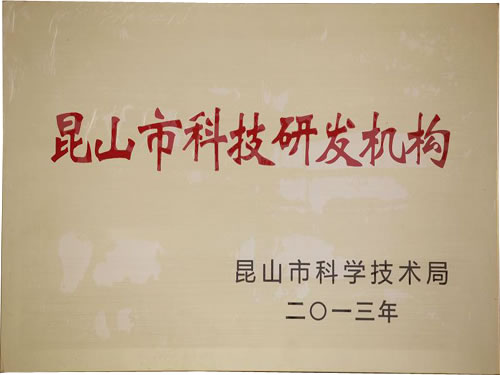 昆山市科技研发机构
昆山市科学技术局
二〇一三年